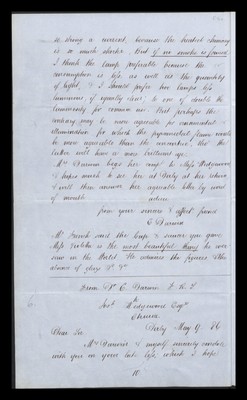 so strong a current, because the heated chimney
is so much shorter. But if no smoke is formed
I think the lamp preferable because the
consumption is less as well as the quantity
of light, & I should prefer two lamps less
luminous, of equally clear, to one of double the
luminosity for common use. But perhaps the
ordinary may be more agreeable for ornamental
illumination for which the pyramidal flame would
be more agreeable than the inverted, tho' the
latter will have a more brilliant
Mrs Darwin begs her comp.ts to Miss Wedgwood
& hopes much to see her at Derby at her return
& will then answer her agreeable letter by word
of mouth. adieu
from your sincere & affect. friend
E Darwin
Mr French said the Cup & saucer you gave
Miss is the most beautiful thing he ever
saw in the World. He admires the figures & the
of glory &c &c
From Dr E. Darwin F.R.S
To Jos.h Wedgewood Esq.re
Etruria
Derby May 9. 86
Dear Sir
Mrs Darwin & myself sincerely condole
with you on your late loss, which I hope
10